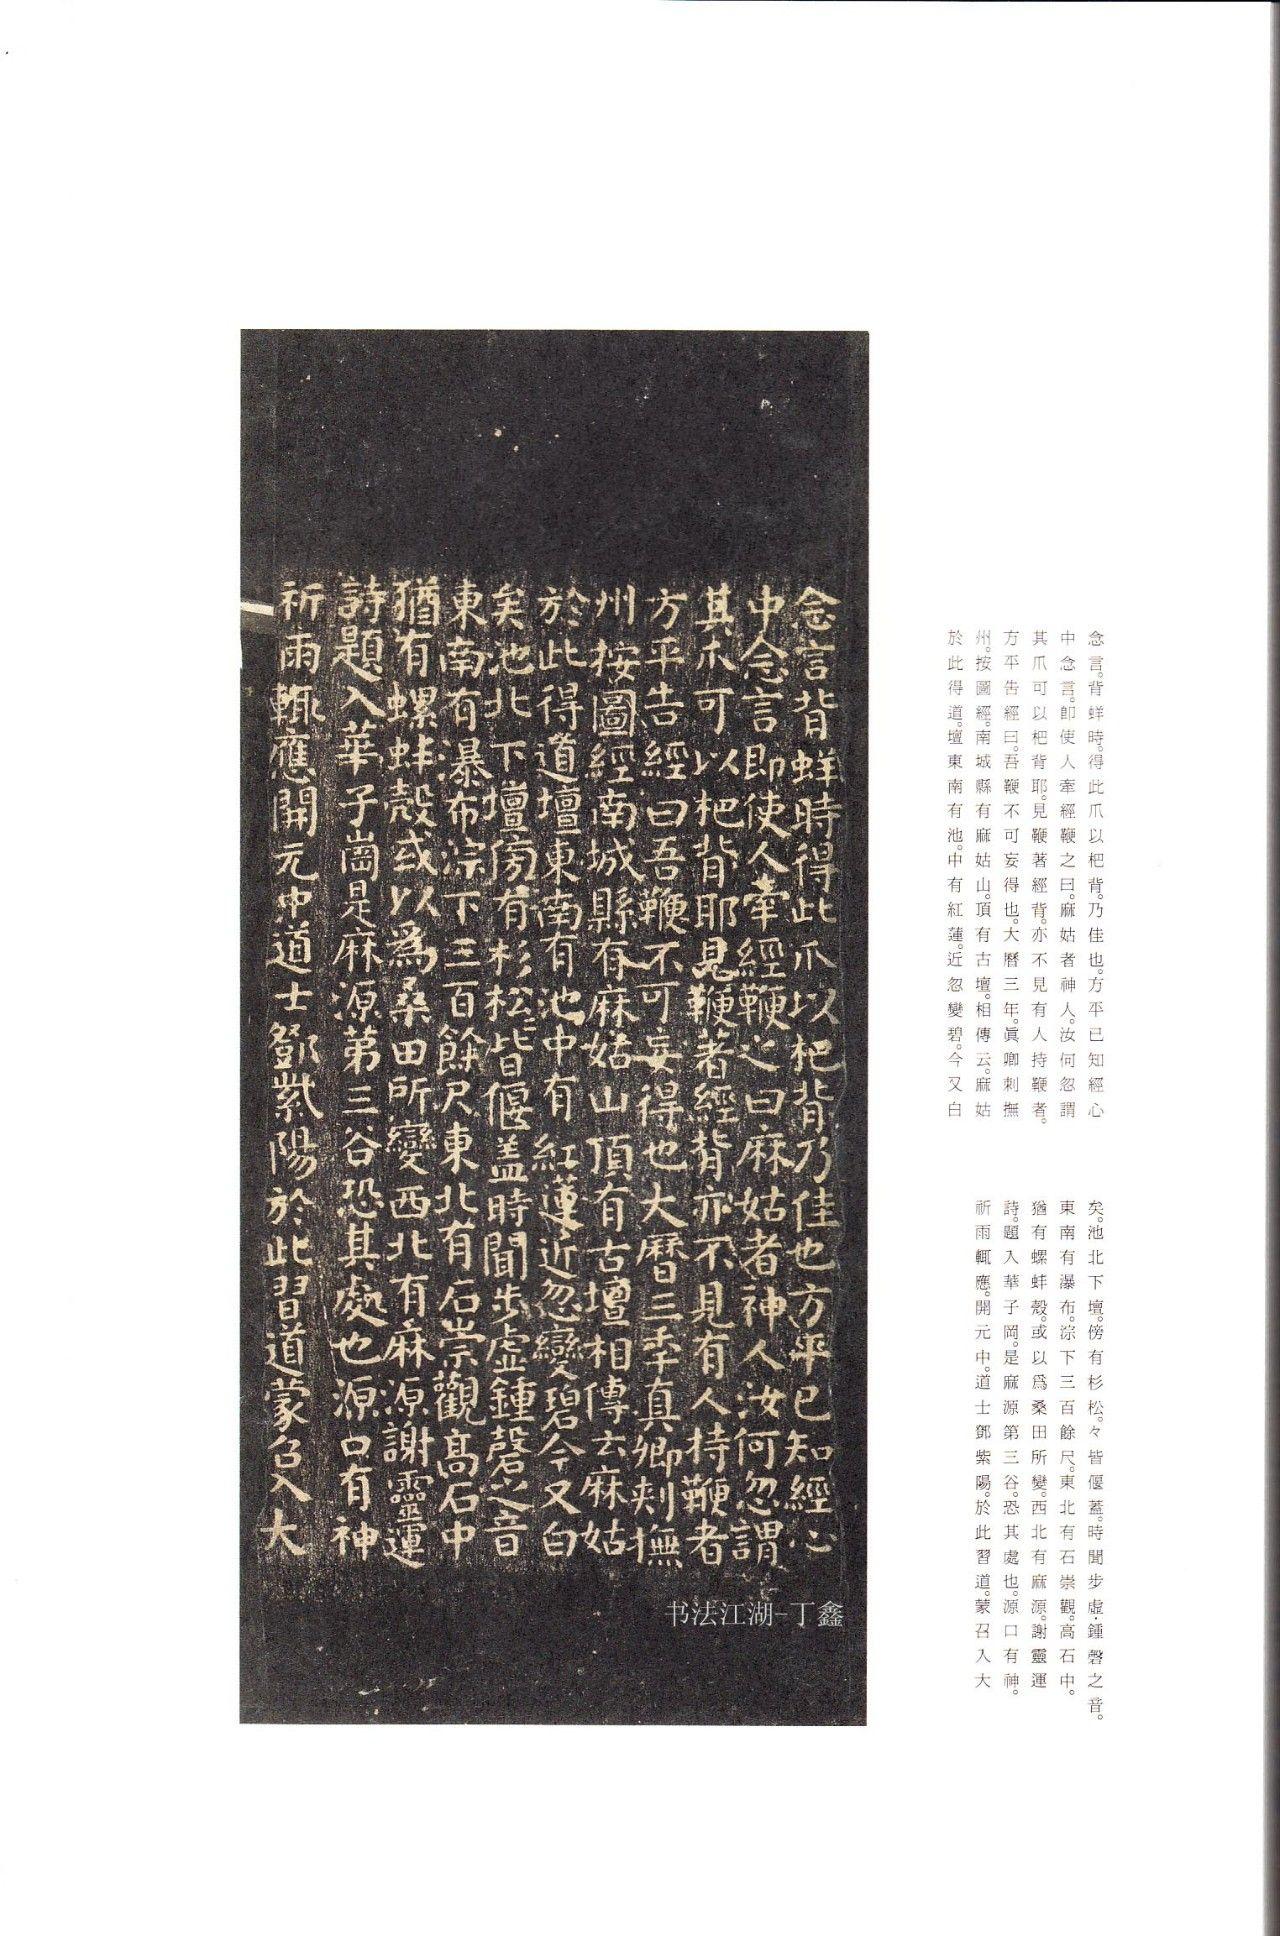 念言背蛘時得此爪以杷背乃佳也方平已知經心
中念言即使人牽經鞭之曰麻姑者神人汝何忽謂
其爪可以杷背耶見鞭著經背亦不見有人持鞭者
方平告經曰吾鞭不可妄得也大曆三年真卿刺撫
州按圖經南城縣有麻姑山頂有古壇相傳云麻姑
於此得道壇東南有池中有紅蓮近忽變碧今又白
矣池北下壇傍有杉松皆偃蓋時聞步虛鍾磬之音
東南有瀑布淙下三百餘尺東北有石崇觀高石中
猶有螺蚌殼或以為桑田所變西北有麻源謝靈運
詩題入華子崗是麻源第三谷恐其處也源口有神
祈雨輒應開元中道士鄧紫陽於此習道蒙召入大
书法江湖-丁鑫
念言。背蛘時。得此爪以杷背。乃佳也。方平已知經心
中念言。即使人牽經鞭之曰。麻姑者神人。汝何忽謂
其爪可以杷背耶。見鞭著經背。亦不見有人持鞭者。
方平告經曰。吾鞭不可妄得也。大曆三年。眞卿刺撫
州。按圖經。南城縣有麻姑山。頂有古壇。相傳云。麻姑
於此得道。壇東南有池。中有紅蓮。近忽變碧。今又白
矣。池北下壇。傍有杉松。々皆偃蓋。時聞步虛·鍾磬之音。
東南有瀑布。淙下三百餘尺。東北有石崇觀。高石中。
猶有螺蚌殼。或以爲桑田所變。西北有麻源。謝靈運
詩。題入華子岡。是麻源第三谷。恐其處也。源口有神。
祈雨輒應。開元中。道士鄧紫陽。於此習道。蒙召入大